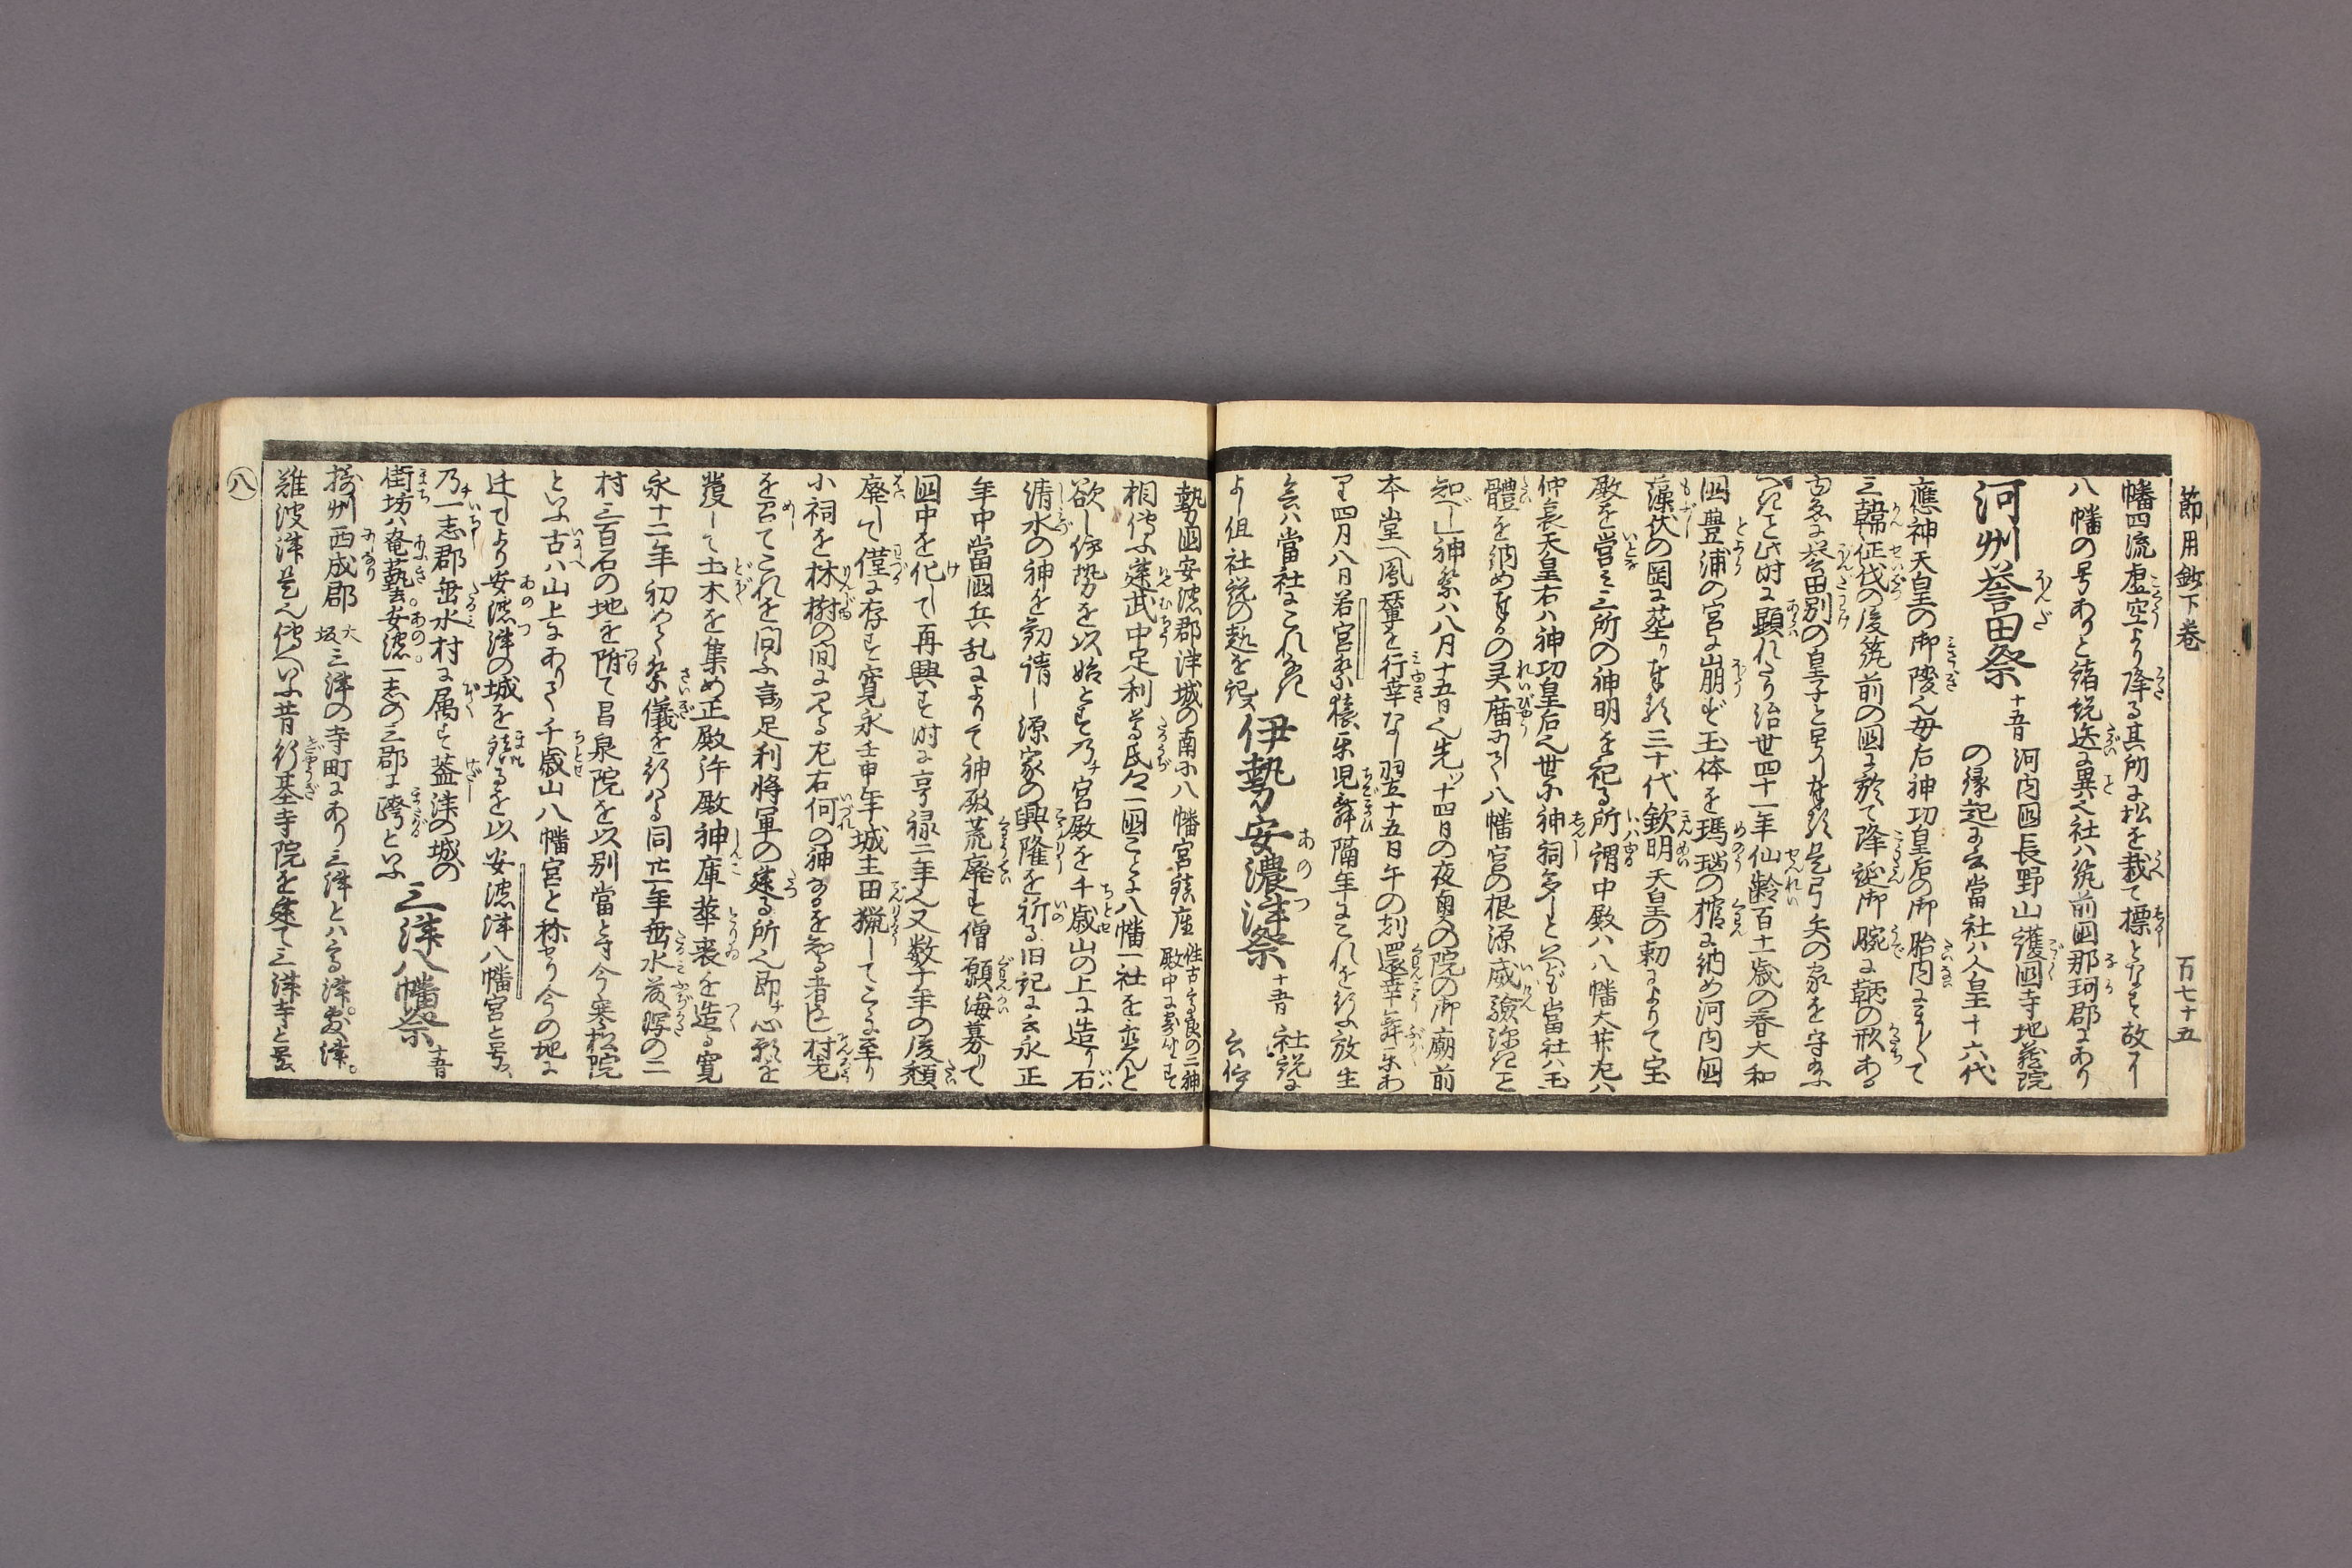 節用敓下巻 百七十五
幡四流虚空より降る其所に松を栽て標となす故に
八幡の号ありと諸説区に異也社ハ筑前国那珂郡にあり
河州誉田祭 十五日 河内国長野山護国寺地蔵院
の縁起に云當社ハ人皇十六代
應神天皇の御陵也母后神功皇后の御胎内にましまして
三韓征伐の後筑前の国に於て降誕御腕に鞆の形ある
故に誉田別の皇子と号し奉る是弓矢の家を守給ふ
へきと此時に顕れたり治世四十一年仙齢百十一歳の春大和
国豊浦の宮に崩ず玉体を瑪瑙の棺に納め河内国
藻伏の岡に葬り奉る三十代欽明天皇の勅によりて宝
殿を営み三所の神明を祀る所謂中殿ハ八幡大菩左ハ
仲哀天皇右ハ神功皇后也世に神祠多しといへども當社ハ玉
體を納め奉るの灵廟にして八幡宮の根源威験弥々と
知べし神祭ハ八月十五日也先ッ十四日の夜奥の院の御廟前
本堂へ鳳輦を行幸なし翌十五日午の刻還幸舞楽あ
り四月八日若宮祭猿楽児舞隔年にこれを行ふ放生
会ハ當社にこれなし 伊勢安濃津祭 十五日 社説に
より但社説の趣を記 云伊
勢国安濃郡津城の南に八幡宮鎮座 殿中に
相傳ふ建武中足利尊氏公一国ことに八幡一社を立んと
欲し伊勢を以始とす乃チ宮殿を千歳山の上に造り石
清水の神を勧請し源家の興隆を祈る旧記に云永正
年中當國兵乱によりて神殿荒廃す僧願海募りて
国中を化して再興す時に享禄二年也又数十年の後頽
廃して僅に存す寛永壬申年城主田猟してこゝに至り
小祠を林樹の間に見る左右何の神なるを知る者なし村老
を召てこれを問ふ言足利将軍の建る所也即チ心願を
發して土木を集め正殿并殿神庫華表を造る寛
永十二年初めて祭儀を行ハる同廿一年垂水藤潟の二
村三百石の地を附て昌泉院を以別當とす今寒松院
といふ古ハ山上にありて千歳山八幡宮と称せり今の地に
迁してより安濃津の城を鎮るを以安濃津八幡宮と号、
乃チ一志郡垂水村に属す蓋津の城の
街坊ハ奄藝。安濃。一志の三郡に跨といふ 三津八幡祭 十五日
摂州西成郡 大坂 三津の寺町にあり三津とハ高津。敷津。
難波津是也傳へいふ昔行基寺院を建て三津寺と号
八